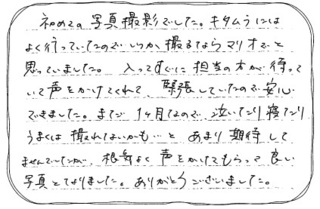 初めての写真撮影でした。キタムラには
よく行っていたのでいつか撮るならマリオでと
思っていました。入ってすぐに担当の方が待って
いて声をかけてくれて、緊張していたので安心
できました。まだ1ヶ月なので、泣いたり寝たり
うまくは撮れないかも…とあまり期待して
ませんでしたが、根気よく声をかけてもらって良い
写真とれました。ありがとうございました。